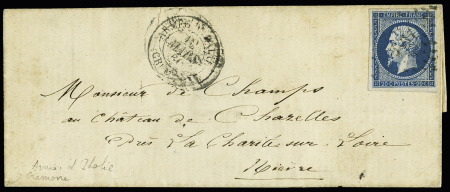 EMPIRE FRANC
20 C POSTES 20 C
Monsieur de Champs
au Château de Chazelles
Près La Charité-sur-Loire
Nièvre
Armée d'Italie
Cremone